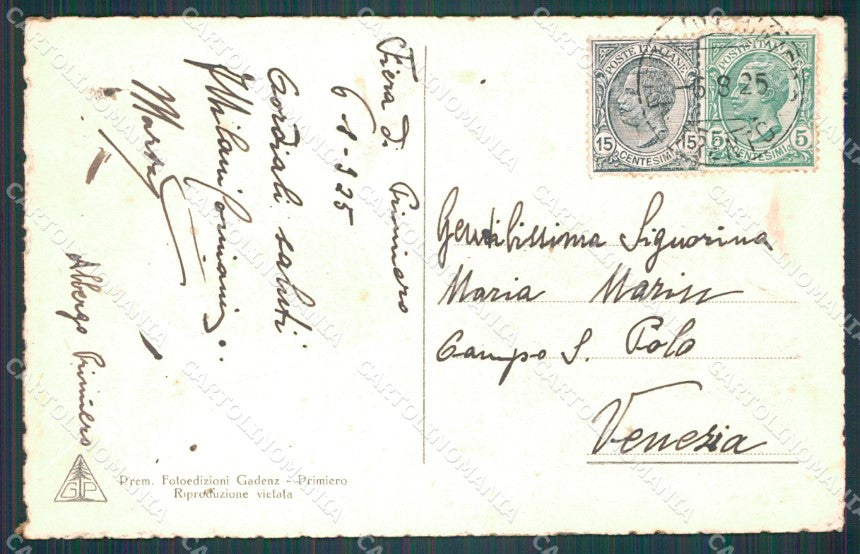 Fiera di Primiero
6-8-925
Cordiali saluti
Albergo Primiero
Prem. Fotoedizioni Gadenz - Primiero
Riproduzione vietata
GP
POSTE ITALIANE
15 CENTESIMI 15
POSTE ITALIANE
5 CENTESIMI 5
-6.8.25
Gentilissima Signorina
Maria Marin
Campo S. Polo
Venezia
CARTOLINOMANIA